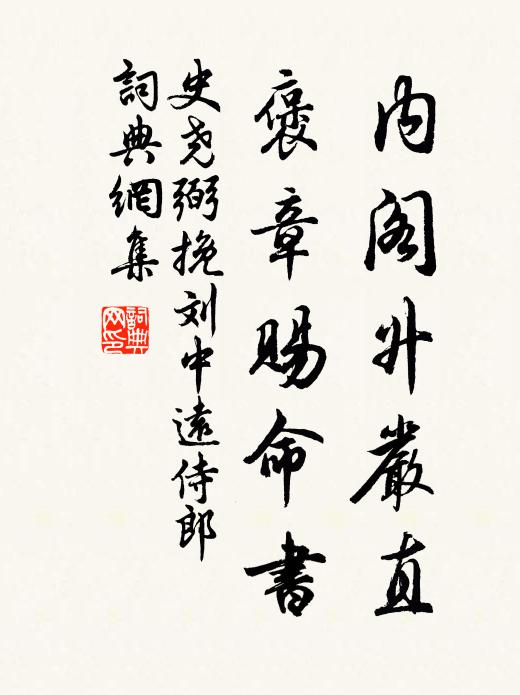 内阁升嚴直
褒章賜命書
史尧弼挽刘中遠侍郎
詞典網集
詞典网印